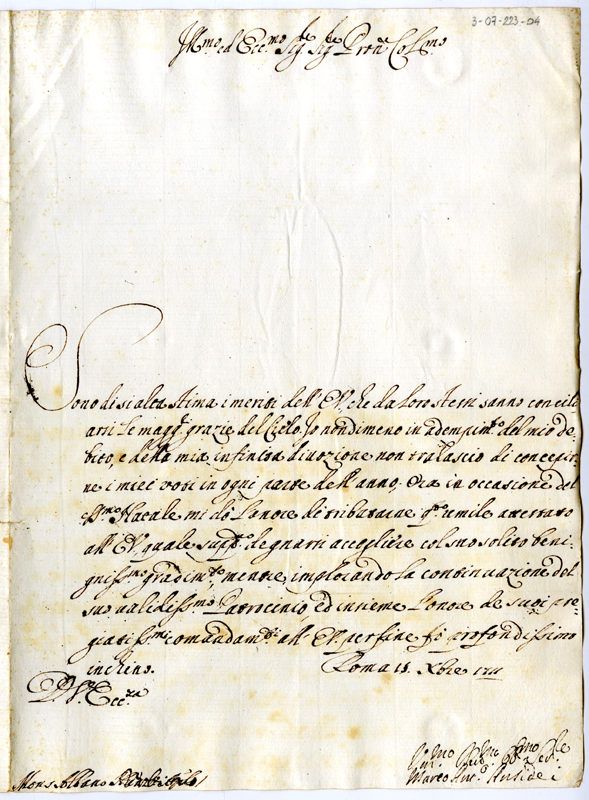 3-07-223-04
Ill.mo ed Ecc.mo Sig.re Sig.re Pron.e Col.mo
Sono di si alta stima i meriti dell' E.V. che da loro stessi sanno concili
arsi le magg.ri grazie del Cielo. Io nondimeno in adempim.to del mio de-
bito, e della mia infinita divozione non tralascio di concepir-
ne i miei voti in ogni parte dell' anno. Ora in occasione del
S.mo Natale mi dò l'onore di tributarne q.to umile attestato
all' E.V. quale supp.co degnarsi accogliere col suo solito beni-
gniss.mo gradim.to mentre implorando la continuazione del
suo validiss.mo Patrocinio ed insieme l'onore de suoi pre-
giatiss.mi comandam.ti all' E.V. per fine fò profondissimo
inchino.
Roma 15. Xbre 1711
D. V. Ecc.za
Mons Albano
Marco Ant.o Ansidei